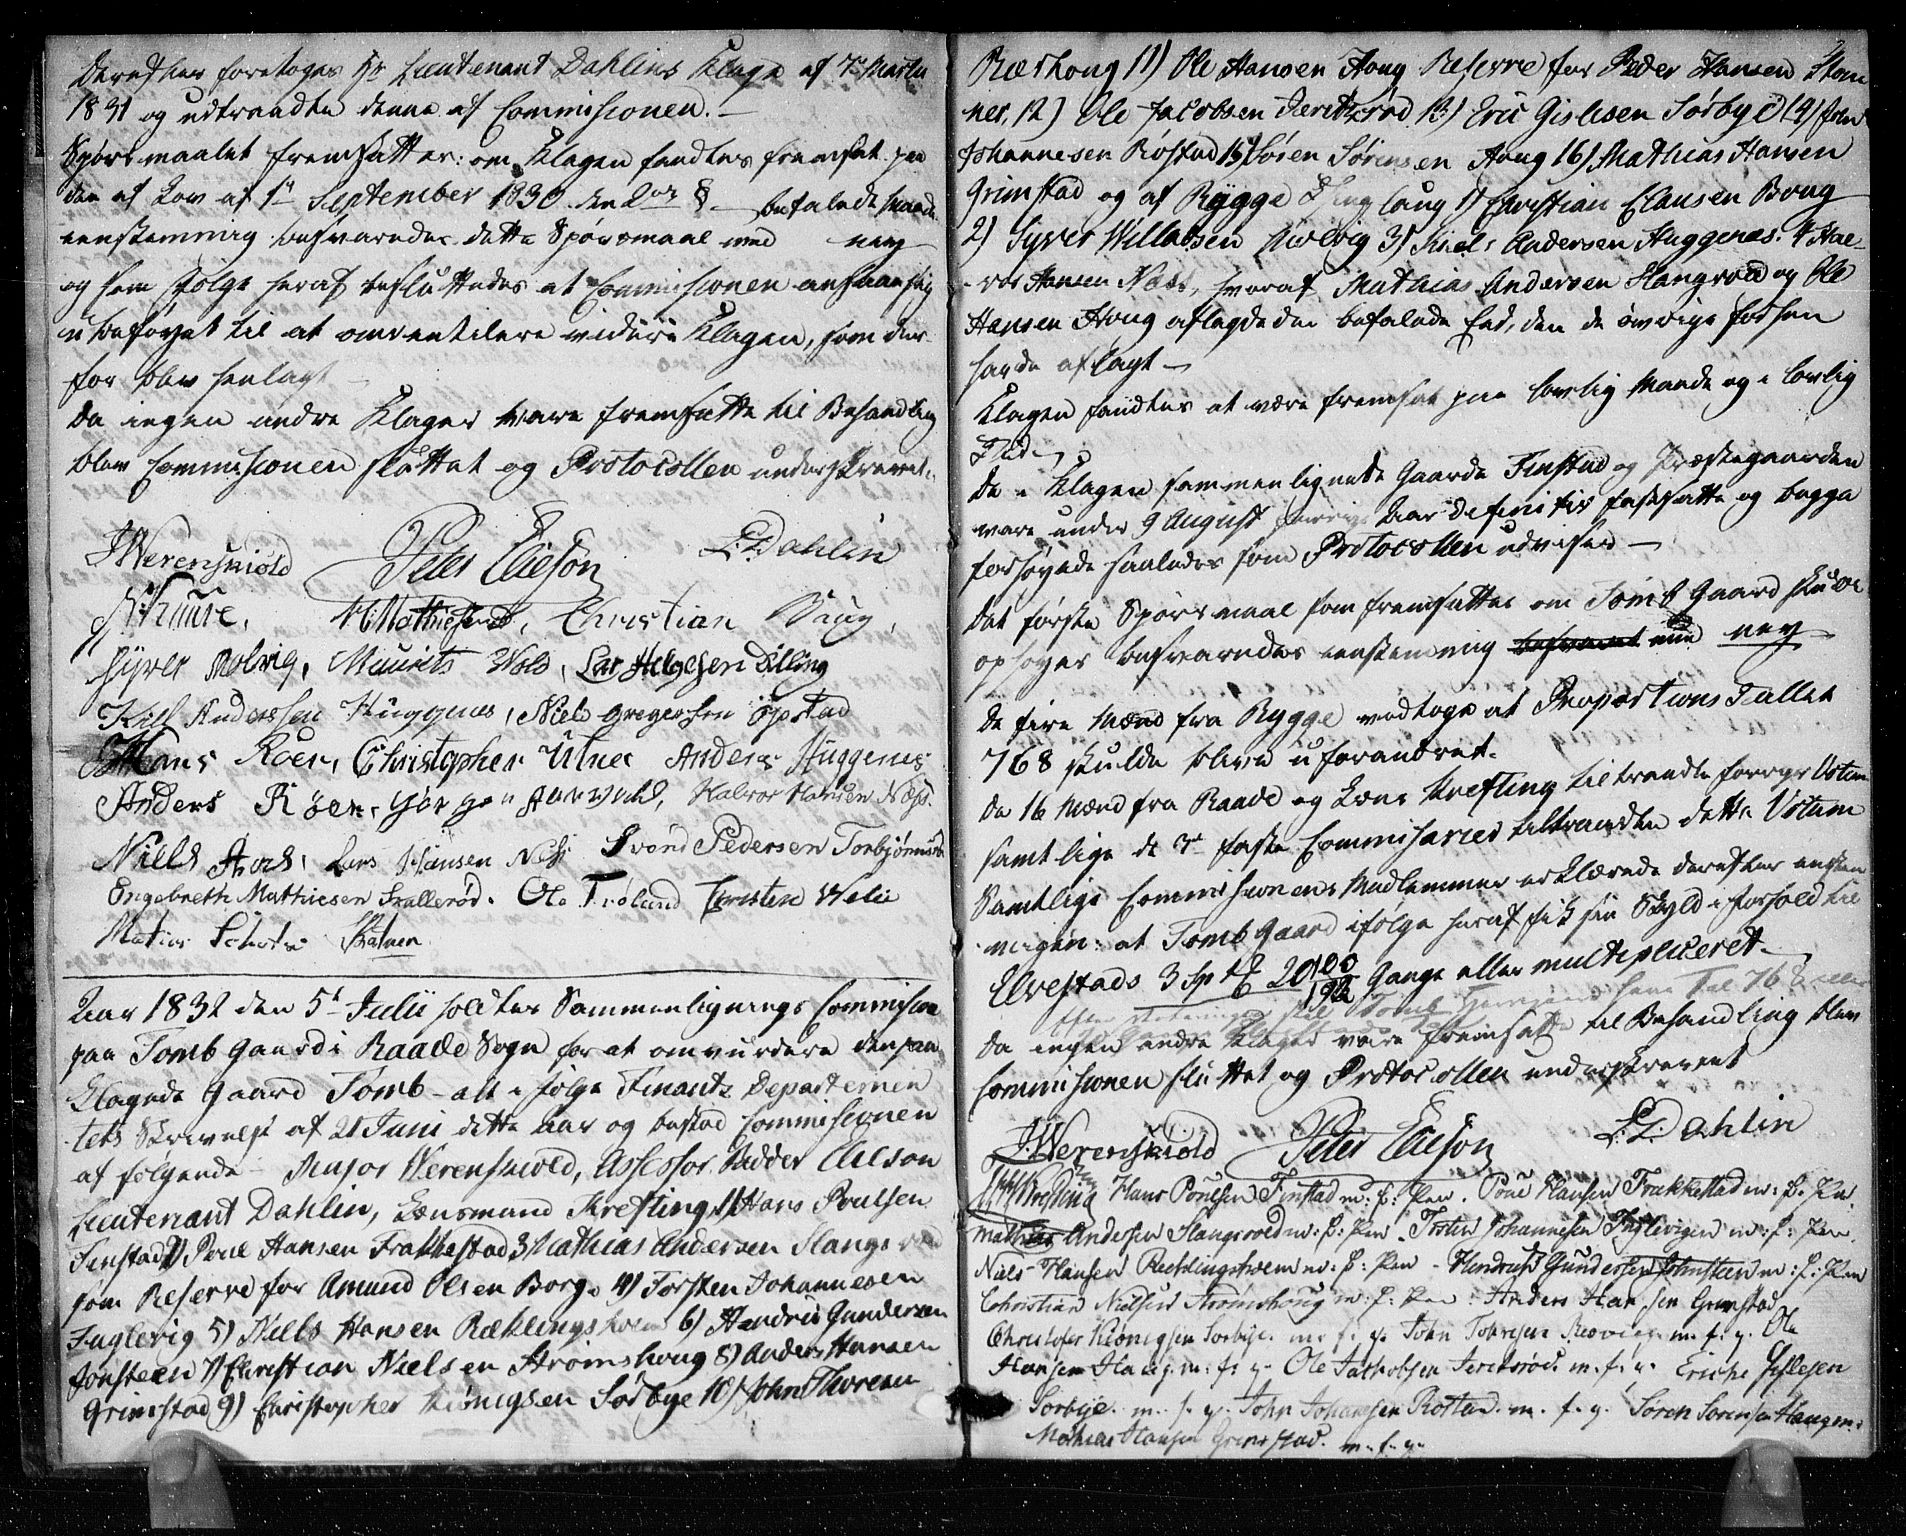 Derefter foretoges Hr Lieutenant Dahlins Klage af 7de Martii
1831 og udtraadte denne af Commissionen. —
Spørsmaalet fremsatt er: om Klagen fandtes fremsat paa
den af Lov af 1ste September 1830 den 2den § — befalede Maade
eenstemmig besvaredes dette Spørsmaal med ney
og som Følge heraf besluttedes at Commissionen ansaa sig
ubeføyet til at omventilere videre Klagen, som der-
for blev henlagt —
Da ingen andre Klager vare fremsatte til Behandling
blev Commissionen sluttet og Protocollen underskrevet.
JWerenskiold Peter Elieson L: Dahlin
M: Mathiesen, Christian Boug,
Syver Molvig, Maurits Vold, Lar Helgesen Dilling
Kiel Anderssen Huggenes, Niels Gregersen Opstad
Hans Roer, Christopher Utne Anders Huggenes
Anders Røer, Jørgen Aarvold, Halvor Hansen Næss.
Niells Aoch, Lars Hansen Ness Svend Pedersen Torbjørnsrød
Engebreth Mathiesen Skallerød. Ole Frølund Christen Velie
Matias
Aar 1832 den 5te Julii holdtes Sammenlignings Commission
paa Tomb Gaard i Raade Sogn for at omvurdere den paa
Klagede Gaard Tomb – alt i følge Finants Departemen
tets Skrivelse af 21 Juni dette Aar og bestod Commissionen
af følgende – Major Werenskiold, Assessor Pedder Elieson
Lieutenant Dahlin, Lænsmand Krefting, 1) Hans Poulsen
Finstad 2) Poul Hansen Frakkestad 3 Mathias Andersen Slangsvold
som Reserve for Amund Olsen Borge 4) Torsten Johannesen
Fuglevig 5) Niells Hansen Ræklingsholm 6) Hendric Gundersen
Jonsteen 7) Christian Nielsen Strømshoug 8) Anders Hansen
Grimstad 9) Christopher Kiønigsen Sørbye 10) John Thoresen
Ræshoug 11) Ole Hansen Houg Reserve for Peder Hansen Stom
ner, 12) Ole Jacobsen Jeretsrød 13) Eric Gislesen Sørbye 14) John
Johannesen Røstad 15) Søren Sørensen Houg 16) Mathias Hansen
Grimstad og af Rygge Thinglaug 1) Christian Clausen Boug
2) Syver Willadsen Molvig 3) Kiels Andersen Huggenæs. 4 Hal-
vor Hansen Næss, hvoraf Mathias Andersen Slangsvold og Ole
Hansen Houg aflagde den befalede Eed, den de øvrige forhen
havde aflagt —
Klagen fandtes at være fremsat paa lovlig Maade og i lovlig
Tid —
De i Klagen sammenlignede Gaarde Finstad og Præstegaarden
vare under 9 August forrige Aar definitiv fastsatte og begge
forhøyede saaledes som Protocollen udviser —
Det første Spørsmaal som fremsattes om Tomb Gaard skulde
ophøyes besvaredes eenstemmig besvaret med ney
De fire Mænd fra Rygge vedtoge at Proportions Tallet
768 skulde blive uforandret.
De 16 Mænd fra Raade og Læns Krefting tiltraadte forrige Votum
samtlige de 3de faste Commissairer tiltraadte dette Votum
Samtlige Commissionens Medlemmer erklærede derefter eenstem
migen: at Tomb Gaard ifølge heraf fik sin Skyld i forhold til
Elvestads 3 Sp 20 100/192 Gange eller multipliceret —
Tomb have Tal 768
Da ingen andre Klager vare fremsatte til Behandling blev
Commissionen sluttet og Protocollen underskrevet
JWerenskiold Peter Elieson L: Dahlin
Krefting Hans Poulsen Finstad m: f: Pen. Poul Hansen Frakkestad m: f. Pen.
Mathias Andersen Slangsvold m: f: Pen – Torsten Johannesen Fuglevigen m: f: Pen.
Niels Hansen Recklingsholm m: f: Pen – Hendrich Gundersen Johnsteen m: f: Pen
Christian Nielsen Strømshoug m: f: Pen. Anders Hansen Grimstad
Christofer Kiønigsen Sørbye. m. f. p. John Tohresen m. f. p. Ole
Hansen Houg. m. f. p. Ole Jakobsen Jeretsrød. m. f. p. Eriche Gislesen
Sørbye. m. f. p. John Johansen Rostad. m. f. p. Søren Sørensen Haugen.
Mathias Hansen Grimstad. m. f. p.